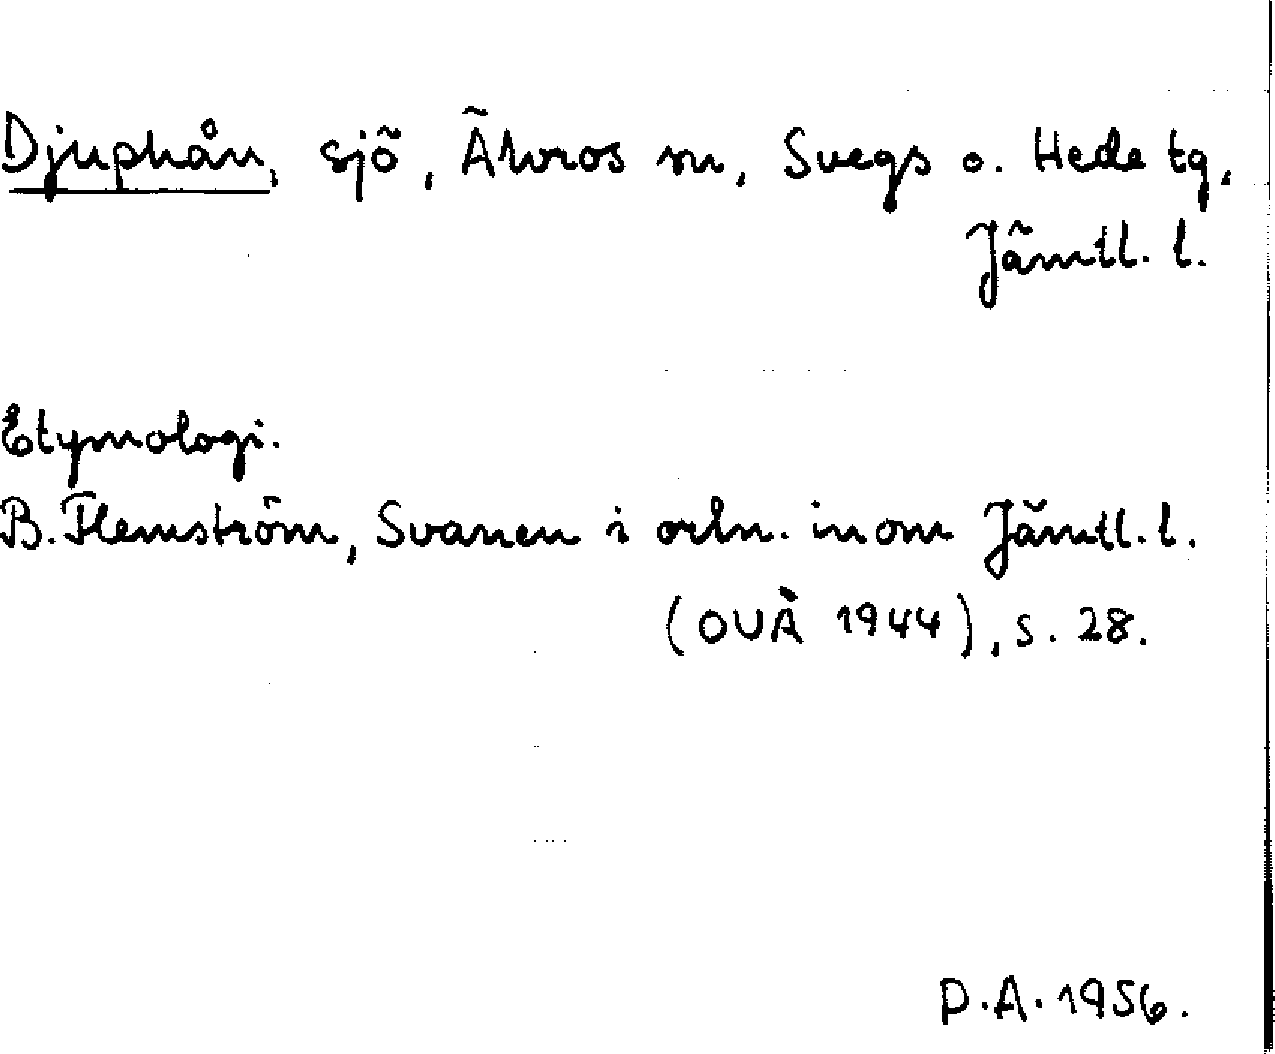 Djuphån, sjö, Älvros sn, Svegs o. Hede tg,
Jämtl. l.
Etymologi.
B. Flemström, Svanen i ortn. inom Jämtl. l.
(OUÅ 1944), s. 28.
P.A. 1956.